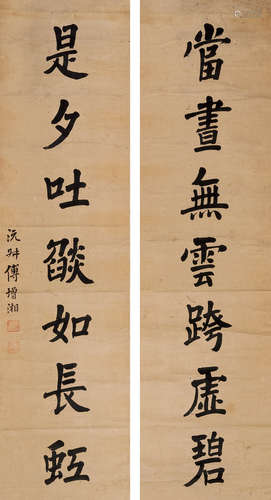 當晝無雲跨虛碧
是夕吐燄如長虹
沅叔傅增湘